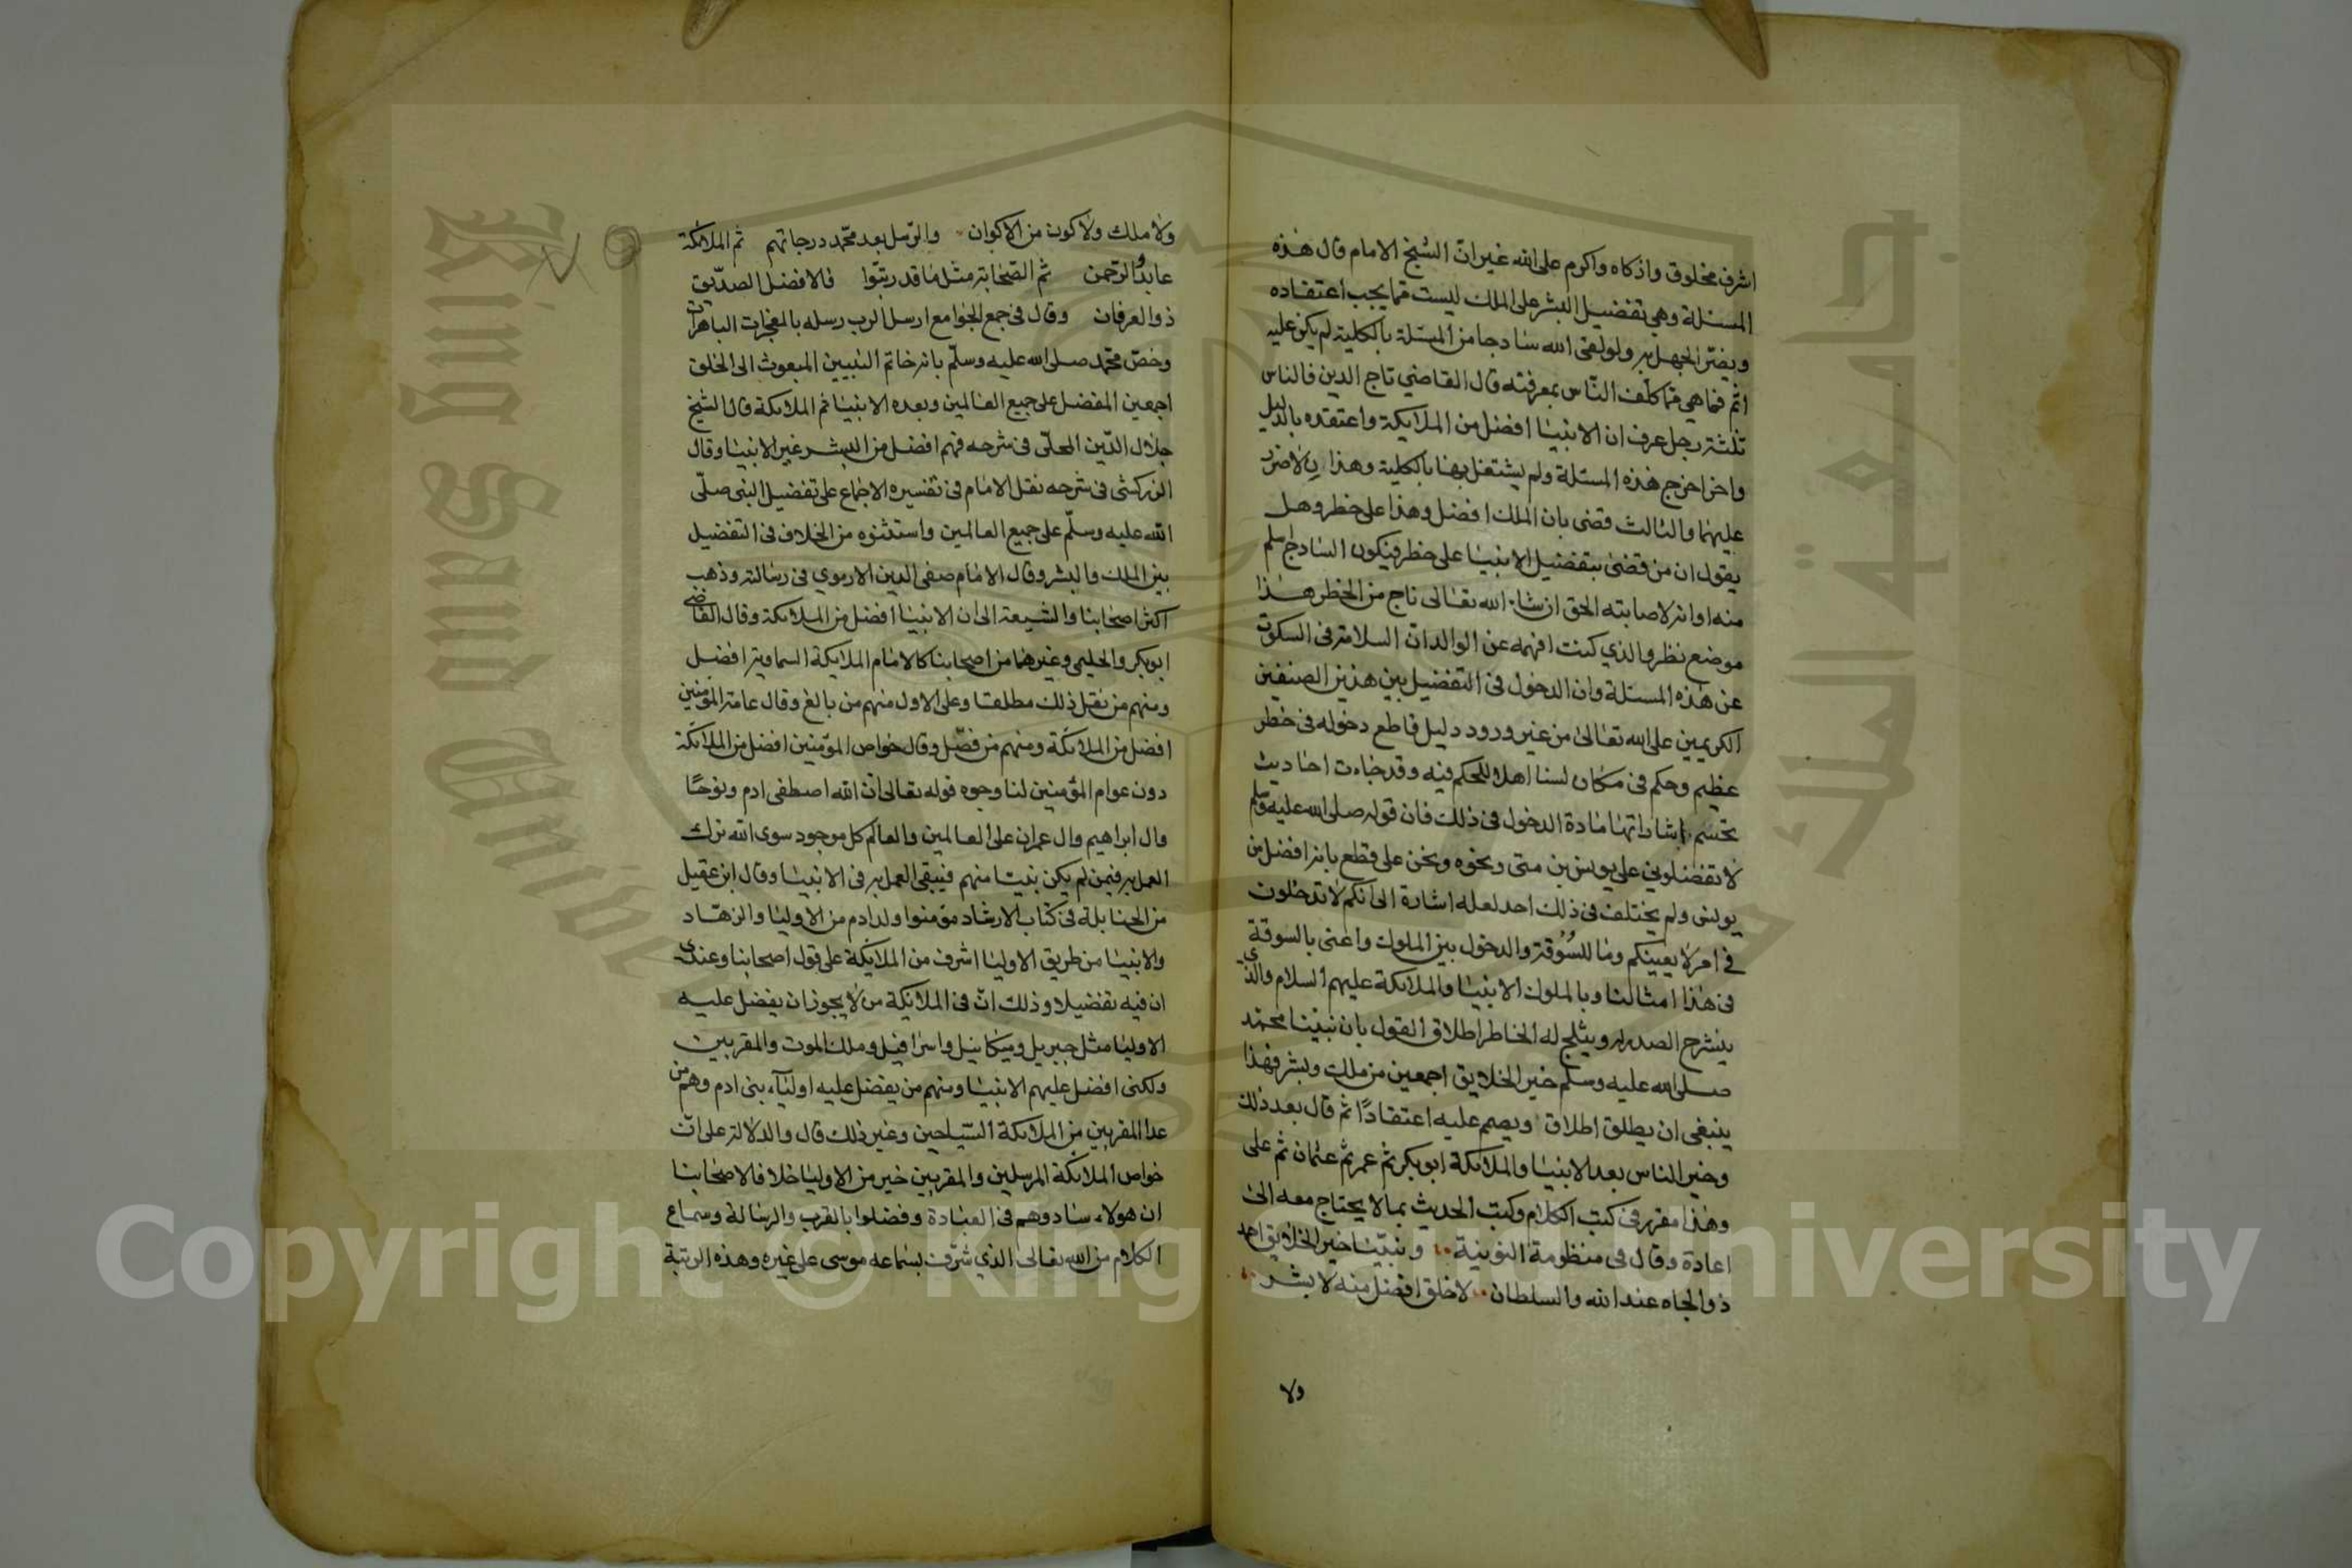 اشرف مخلوق واذكاه واكرم على الله غير ان الشيخ الامام قال هذه
المسئلة وهي تفضيل البشر على الملك ليست مما يجب اعتقاده
ويضر الجهل به ولو لقي الله ساذجا من المسئلة بالكلية لم يكن عليه
اثم فما هي مما كلف الناس بمعرفته قال القاضي تاج الدين فالناس
ثلثة رجل عرف ان الانبيا افضل من الملايكة واعتقده بالدليل
واخر اخرج هذه المسئلة ولم يشتغل بها بالكلية وهذان لاضرر
عليهما والثالث قضى بان الملك افضل وهذا على خطر وهل
يقول ان من قضى بتفضيل الانبيا على خطر فيكون الساذج اسلم
منه او انه لاصابته الحق ان شاء الله تعالى ناج من الخطر هذا
موضع نظر والذي كنت افهمه عن الوالد ان السلامة في السكوت
عن هذه المسئلة وان الدخول في التفضيل بين هذين الصنفين
الكريمين على الله تعالى من غير ورود دليل قاطع دخوله في خطر
عظيم وحكم في مكان لسنا اهلا للحكم فيه وقد جاءت احاديث
تحسم باشاراتها مادة الدخول في ذلك فان قوله صلى الله عليه وسلم
لا تفضلوني على يونس بن متى ونحوه ونحن على قطع بانه افضل من
يونس ولم يختلف في ذلك احد لعله اشارة الى انكم لا تدخلون
في امر لا يعنيكم وما للسوقة والدخول بين الملوك واعني بالسوقة
في هذا امثالنا وبالملوك الانبيا والملائكة عليهم السلام والذي
ينشرح الصدر له ويثلج له الخاطر اطلاق القول بان نبينا محمد
صلى الله عليه وسلم خير الخلايق اجمعين من ملك وبشر فهذا
ينبغي ان يطلق اطلاق ويصمم عليه اعتقادًا ثم قال بعد ذلك
وخير الناس بعد الانبيا والملائكة ابو بكر ثم عمر ثم عثمان ثم على
وهذا مقرر في كتب الكلام وكتب الحديث بما لا يحتاج معه الى
اعادة وقال في منظومة النونية ونبينا خير الخلايق احمد
ذو الجاه عند الله والسلطان لا خلق افضل منه لا بشر
ولا
ولا ملك ولا كون من الاكوان والرسل بعد محمد درجاتهم ثم الملائكة
عابدو الرحمن ثم الصحابة مثل ما قد رتبوا فالافضل الصديق
ذو العرفان وقال في جمع الجوامع ارسل الرب رسله بالمعجزات الباهرات
وخص محمد صلى الله عليه وسلم بانه خاتم النبيين المبعوث الى الخلق
اجمعين المفضل على جميع العالمين وبعده الانبيا ثم الملائكة قال الشيخ
جلال الدين المحلى في شرحه فهم افضل من البشر غير الانبيا وقال
الزركشي في شرحه نقل الامام في تفسيره الاجماع على تفضيل النبي صلى
الله عليه وسلم على جميع العالمين واستثنوه من الخلاف في التفضيل
بين الملك والبشر وقال الامام صفي الدين الارموي في رسالته وذهب
اكثر اصحابنا والشيعة الى ان الانبيا افضل من الملائكة وقال القاضي
ابو بكر والحليمي وغيرهما من اصحابنا كالامام الملايكة السماوية افضل
ومنهم من نقل ذلك مطلقا وعلى الاول منهم من بالغ وقال عامة المؤمنين
افضل من الملائكة ومنهم من فصل وقال خواص المؤمنين افضل من الملائكة
دون عوام المؤمنين لنا وجوه قوله تعالى ان الله اصطفى ادم ونوحًا
وال ابراهيم وال عمران على العالمين والعالم كل موجود سوى الله ترك
العمل به فيمن لم يكن نبيا منهم فيبقى العمل به في الانبيا وقال ابن عقيل
من الحنابلة في كتاب الارشاد مؤمنوا ولد ادم من الاوليا والزهاد
والانبيا من طريق الاوليا اشرف من الملائكة على قول اصحابنا وعندي
ان فيه تفضيلا وذلك ان في الملائكة من لا يجوز ان يفضل عليه
الاوليا مثل جبريل وميكائيل واسرافيل وملك الموت والمقربين
ولكنى افضل عليهم الانبيا ومنهم من يفضل عليه اولياء بنى ادم وهم من
عدا المقربين من الملائكة السياحين وغير ذلك قال والدلالة على ان
خواص الملائكة المرسلين والمقربين خير من الاوليا خلافا لاصحابنا
ان هولاء ساووهم في العبادة وفضلوا بالقرب والرسالة وسماع
الكلام من الله تعالى الذي شرف بسماعه موسى على غيره وهذه الرتبة
Copyright © King Saud University
King Saud University
جامعة الملك سعود